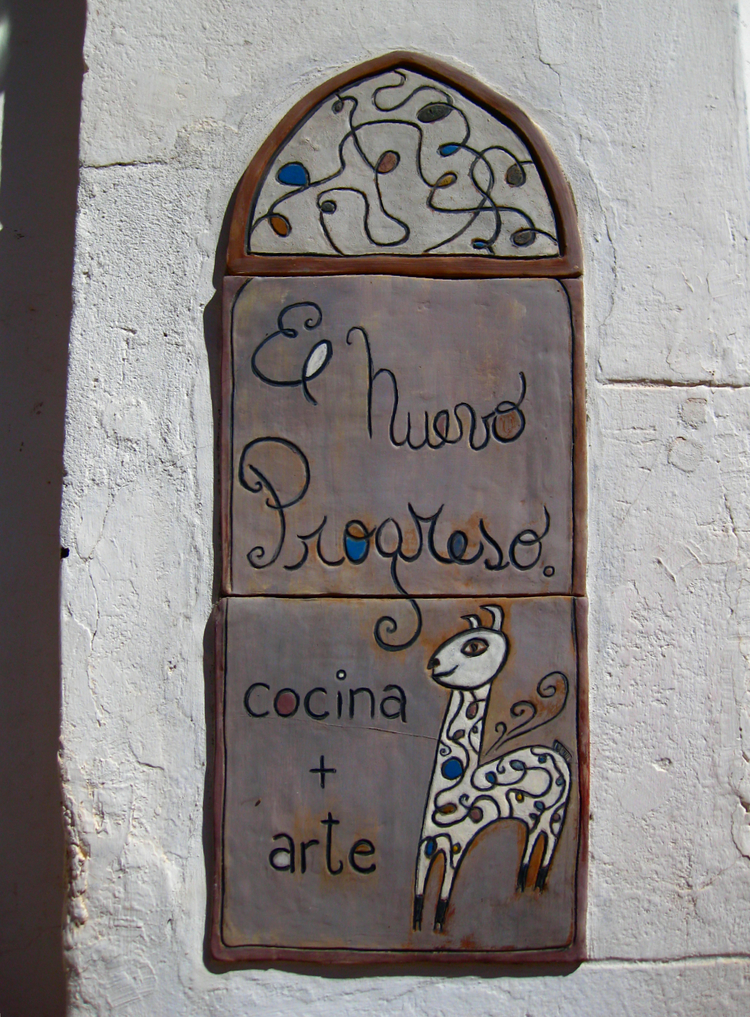 El nuevo
Progreso.
cocina
+
arte